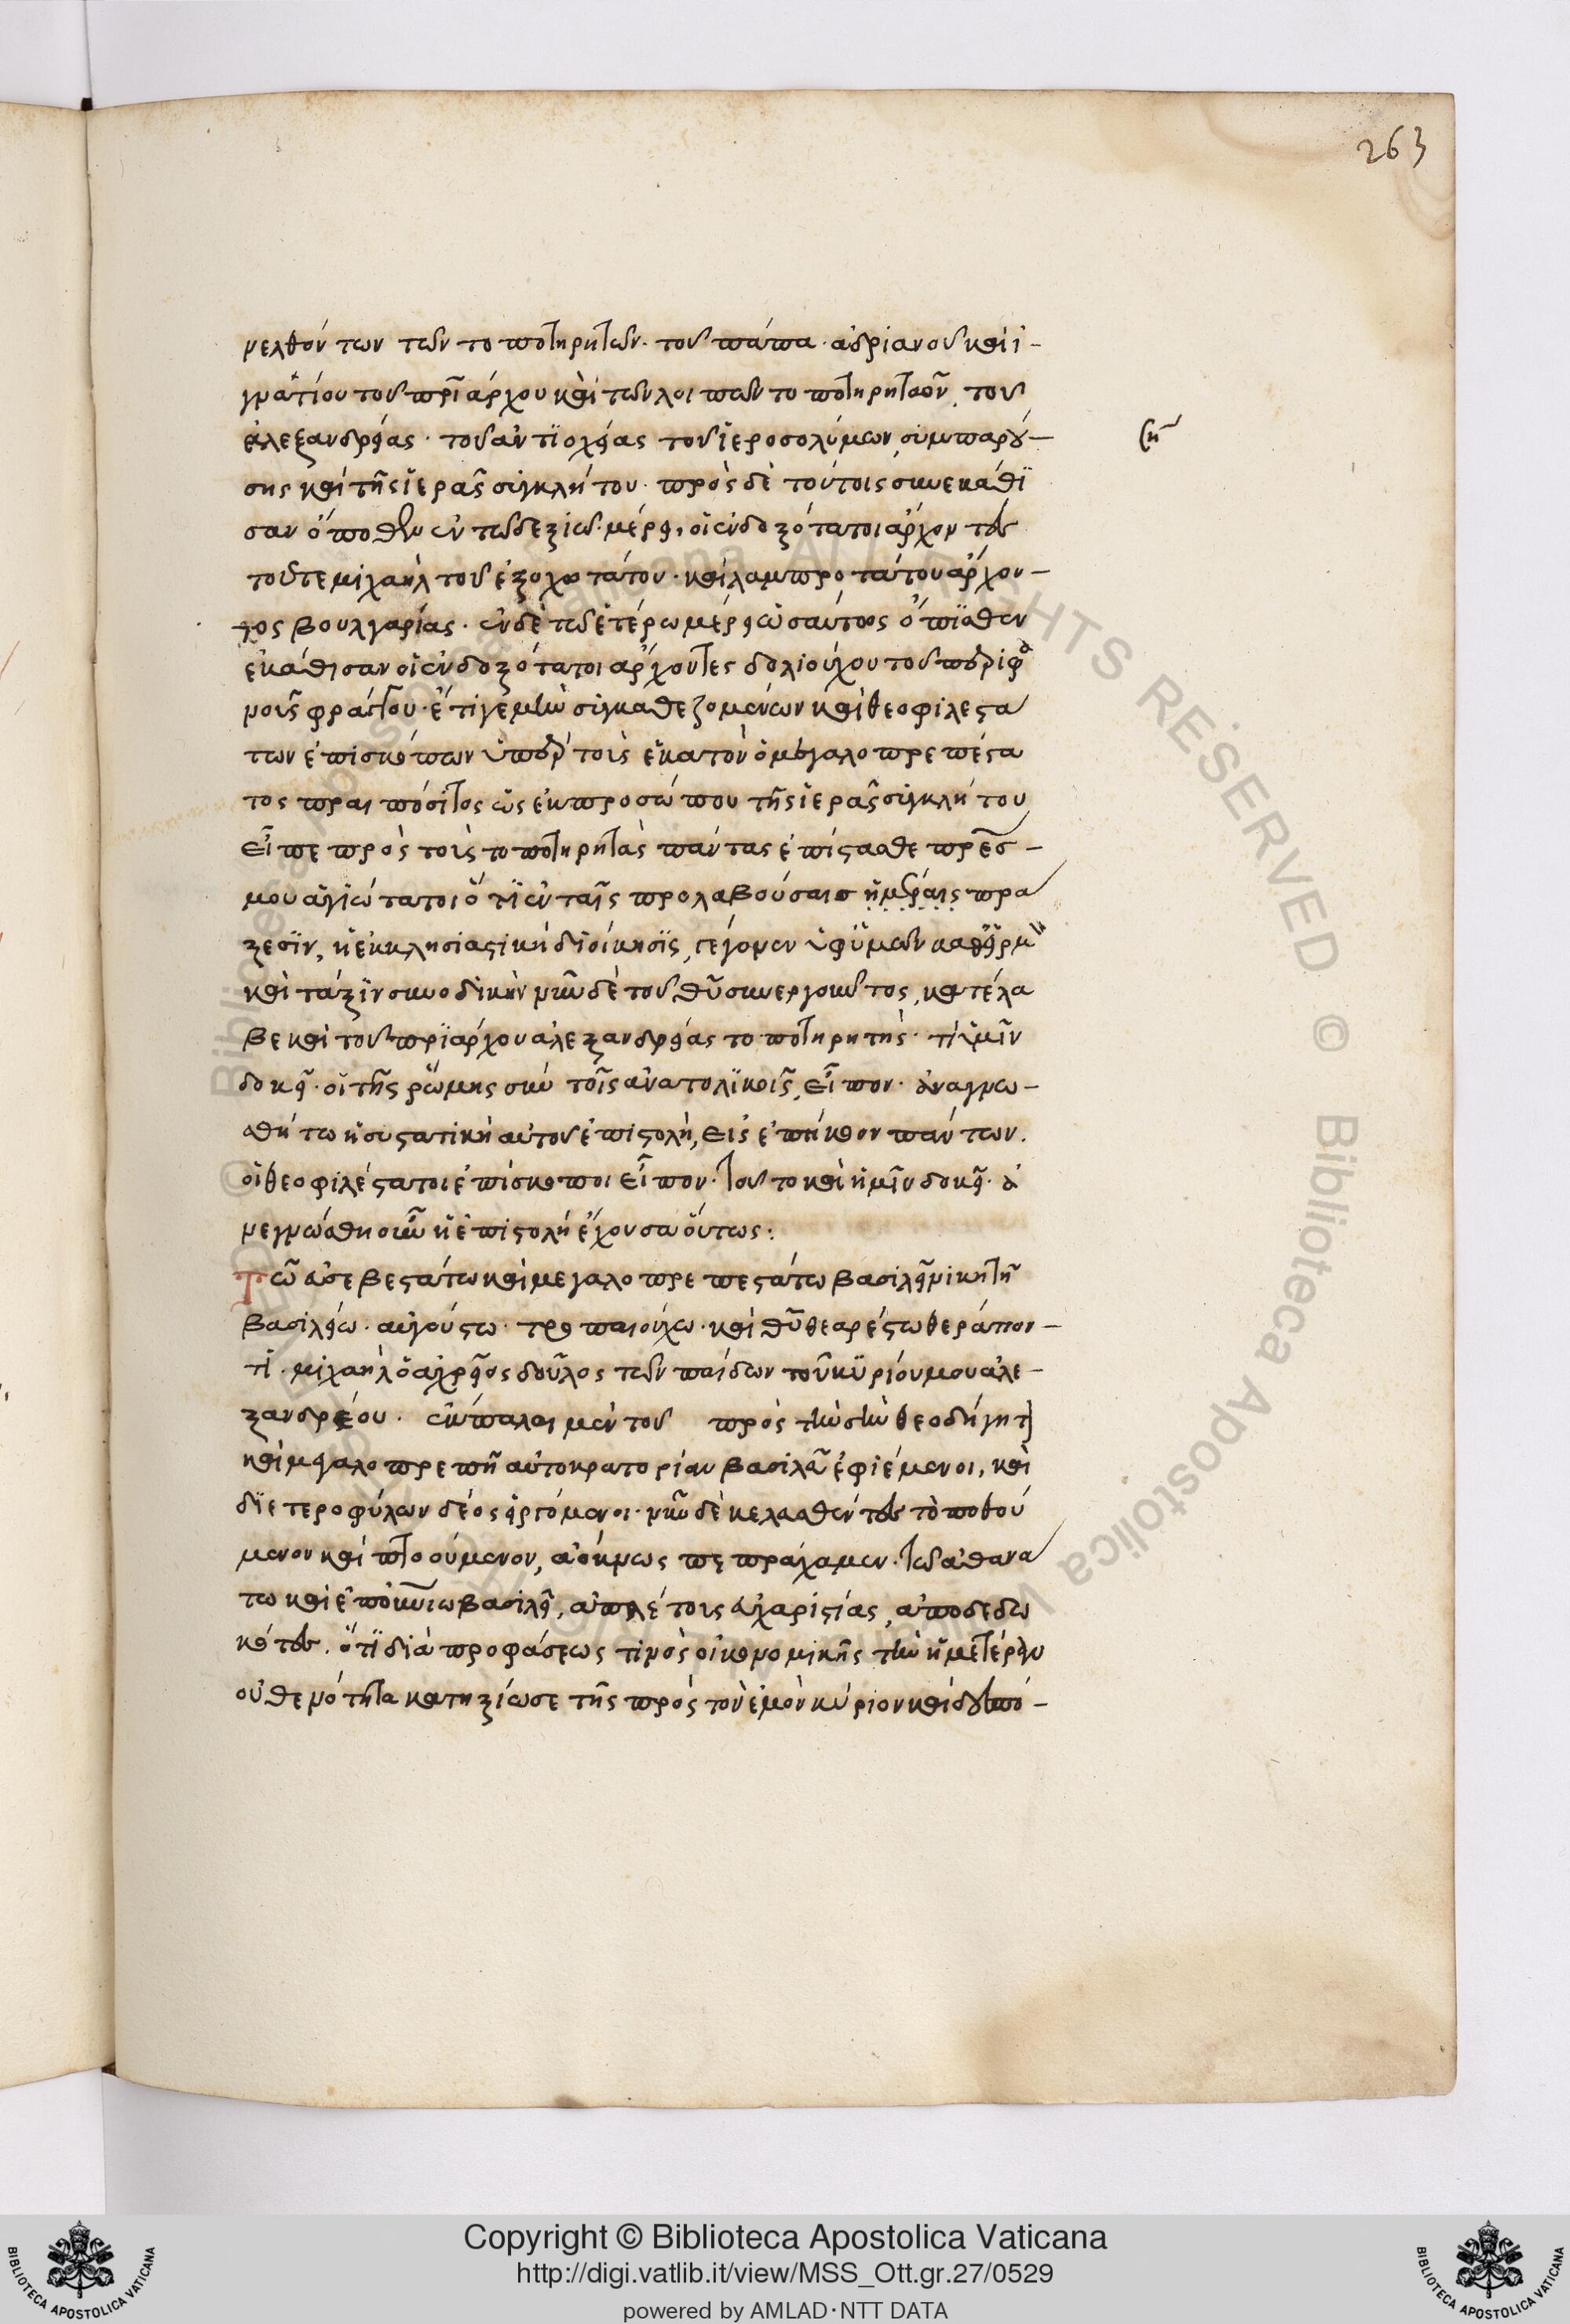 263
νελθόντων τῶν τοποτηρητῶν· τοῦ πάπα ἀδριανοῦ καὶ ἰ-
γνατίου τοῦ πριάρχου καὶ τῶν λοιπῶν τοποτηρητῶν, τοῦ
ἀλεξανδρείας· τοῦ ἀντιοχείας τοῦ ἱεροσολύμων, συμπαρού-
σης καὶ τῆς ἱερᾶς συγκλήτου· πρὸς δὲ τούτοις συνεκάθι
σαν ὄποθεν ἐν τῶ δεξιῶ μέρει, οἱ ἐνδοξότατοι ἄρχοντες
τοῦ τε μιχαὴλ τοῦ ἐξοχωτάτου· καὶ λαμπροτάτου ἄρχον-
τος βουλγαρίας· ἐν δὲ τῶ ἑτέρω μέρει ὡσαύτως ὄπιθεν
ἐκάθισαν οἱ ἐνδοξότατοι ἄρχοντες δολιούχου τοῦ περιφα
νοῦς φράγγου· ἔτι γε μὴν συγκαθεζομένων καὶ θεοφιλεστά
των ἐπισκόπων ὑπὲρ τοὺς ἑκατὸν ὁ μεγαλοπρεπέστα
τος πραιπόσιτος ὡς ἐκ προσώπου τῆς ἱερᾶς συγκλήτου
εἶπε πρὸς τοὺς τοποτηρητὰς πάντας ἐπίστασθε πρες-
μου ἁγιώτατοι ὅτι ἐν ταῖς προλαβούσαις ἡμέραις πρά
ξεσιν, ἡ ἐκκλησιαστικὴ διοίκησις, γέγονεν ὑφ' ὑμῶν
καὶ τάξιν συνοδικὴν νῦν δὲ τοῦ θῦ συνεργοῦντος, κατέλα
βε καὶ τοῦ πριάρχου ἀλεξανδρείας τοποτηρητής· τί ὑμῖν
δοκεῖ· οἱ τῆς ῥώμης σὺν τοῖς ἀνατολικοῖς, εἶπον· ἀναγνω-
σθήτω ἡ συστατικὴ αὐτοῦ ἐπιστολὴ, εἰς ἐπήκοον πάντων.
οἱ θεοφιλέστατοι ἐπίσκοποι εἶπον· τοῦτο καὶ ἡμῖν δοκεῖ· ἀ
νεγνώσθη οὖν ἡ ἐπιστολὴ ἔχουσα οὕτως:
Τῶ εὐσεβεστάτω καὶ μεγαλοπρεπεστάτω βασιλεῖ νικητῆ
βασιλείω· αὐγούστω· τροπαιούχω· καὶ θῦ θεαρέστω θεράπον-
τι· μιχαὴλ ὁ ἀχρεῖος δοῦλος τῶν παίδων τοῦ κυρίου μου ἀλε-
ξανδρέου· ἔκπαλαι μὲν τοῦ πρὸς τὴν σὴν θεοδήγητ
καὶ μεγαλοπρεπῆ αὐτοκρατορίαν βασιλεῦ ἐφιέμενοι, καὶ
δι' ἑτεροφύλων δέος εἰργόμενοι· νῦν δὲ κελευσθέντες τὸ ποθού
μενον καὶ πτοούμενον, ἀόκνως πεπράχαμεν· τῶ ἀθανά
τω καὶ ἐπουρανίω βασιλεῖ, ἀπλέτους εὐχαριστίας, ἀποδεδω
κότες. ὅτι διὰ προφάσεως τινὸς οἰκονομικῆς τὴν ἡμετέραν
οὐθενότητα κατηξίωσε τῆς πρὸς τὸν ἐμὸν κύριον καὶ δεσπό-